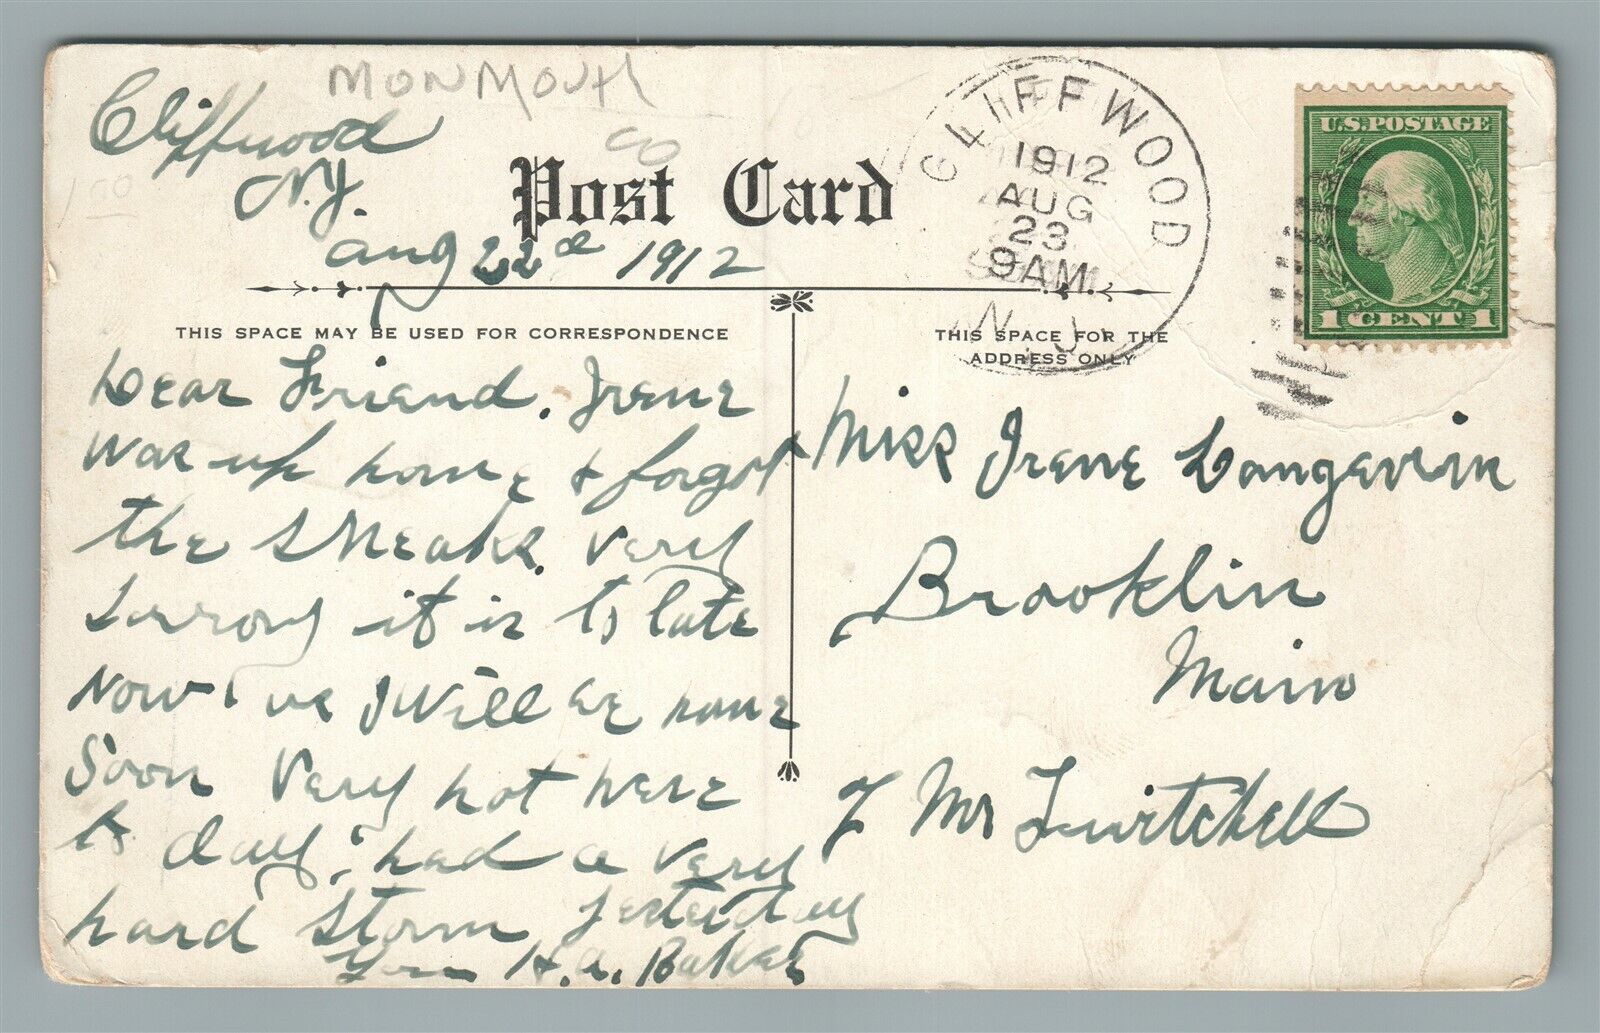 MONMOUTH
CO
100
Cliffwood
N.J.
Aug 22d 1912
Post Card
CLIFFWOOD
1912
AUG
23
9AM
N.J.
U.S. POSTAGE
1 CENT 1
THIS SPACE MAY BE USED FOR CORRESPONDENCE
THIS SPACE FOR THE
ADDRESS ONLY
Dear Friend. Irene
was up home & forgot
the sneaks. Very
sorrory it is to late
now I will be home
Soon Very hot here
to day; had a very
hard storm yesterday
H.A. Baker
Miss Irene Langevin
Brooklin
Main
Mr Twitchell